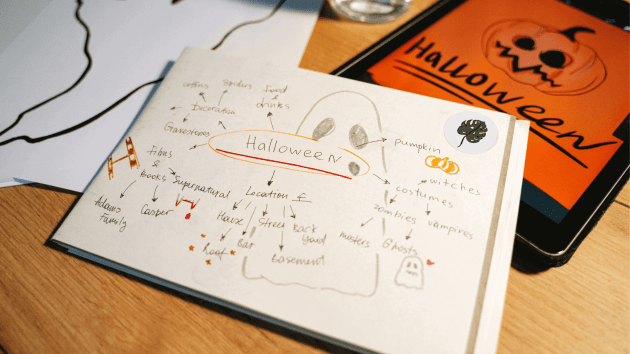 Halloween
coffins
borders
food
&
drinks
Decoration
Gravestones
Halloween
pumpkin
Films
&
Books
Supernatural
Location
costumes
witches
Adams
Family
Casper
House
Street
Back
yard
zombies
vampires
Roof
Bar
Basement
Ghosts